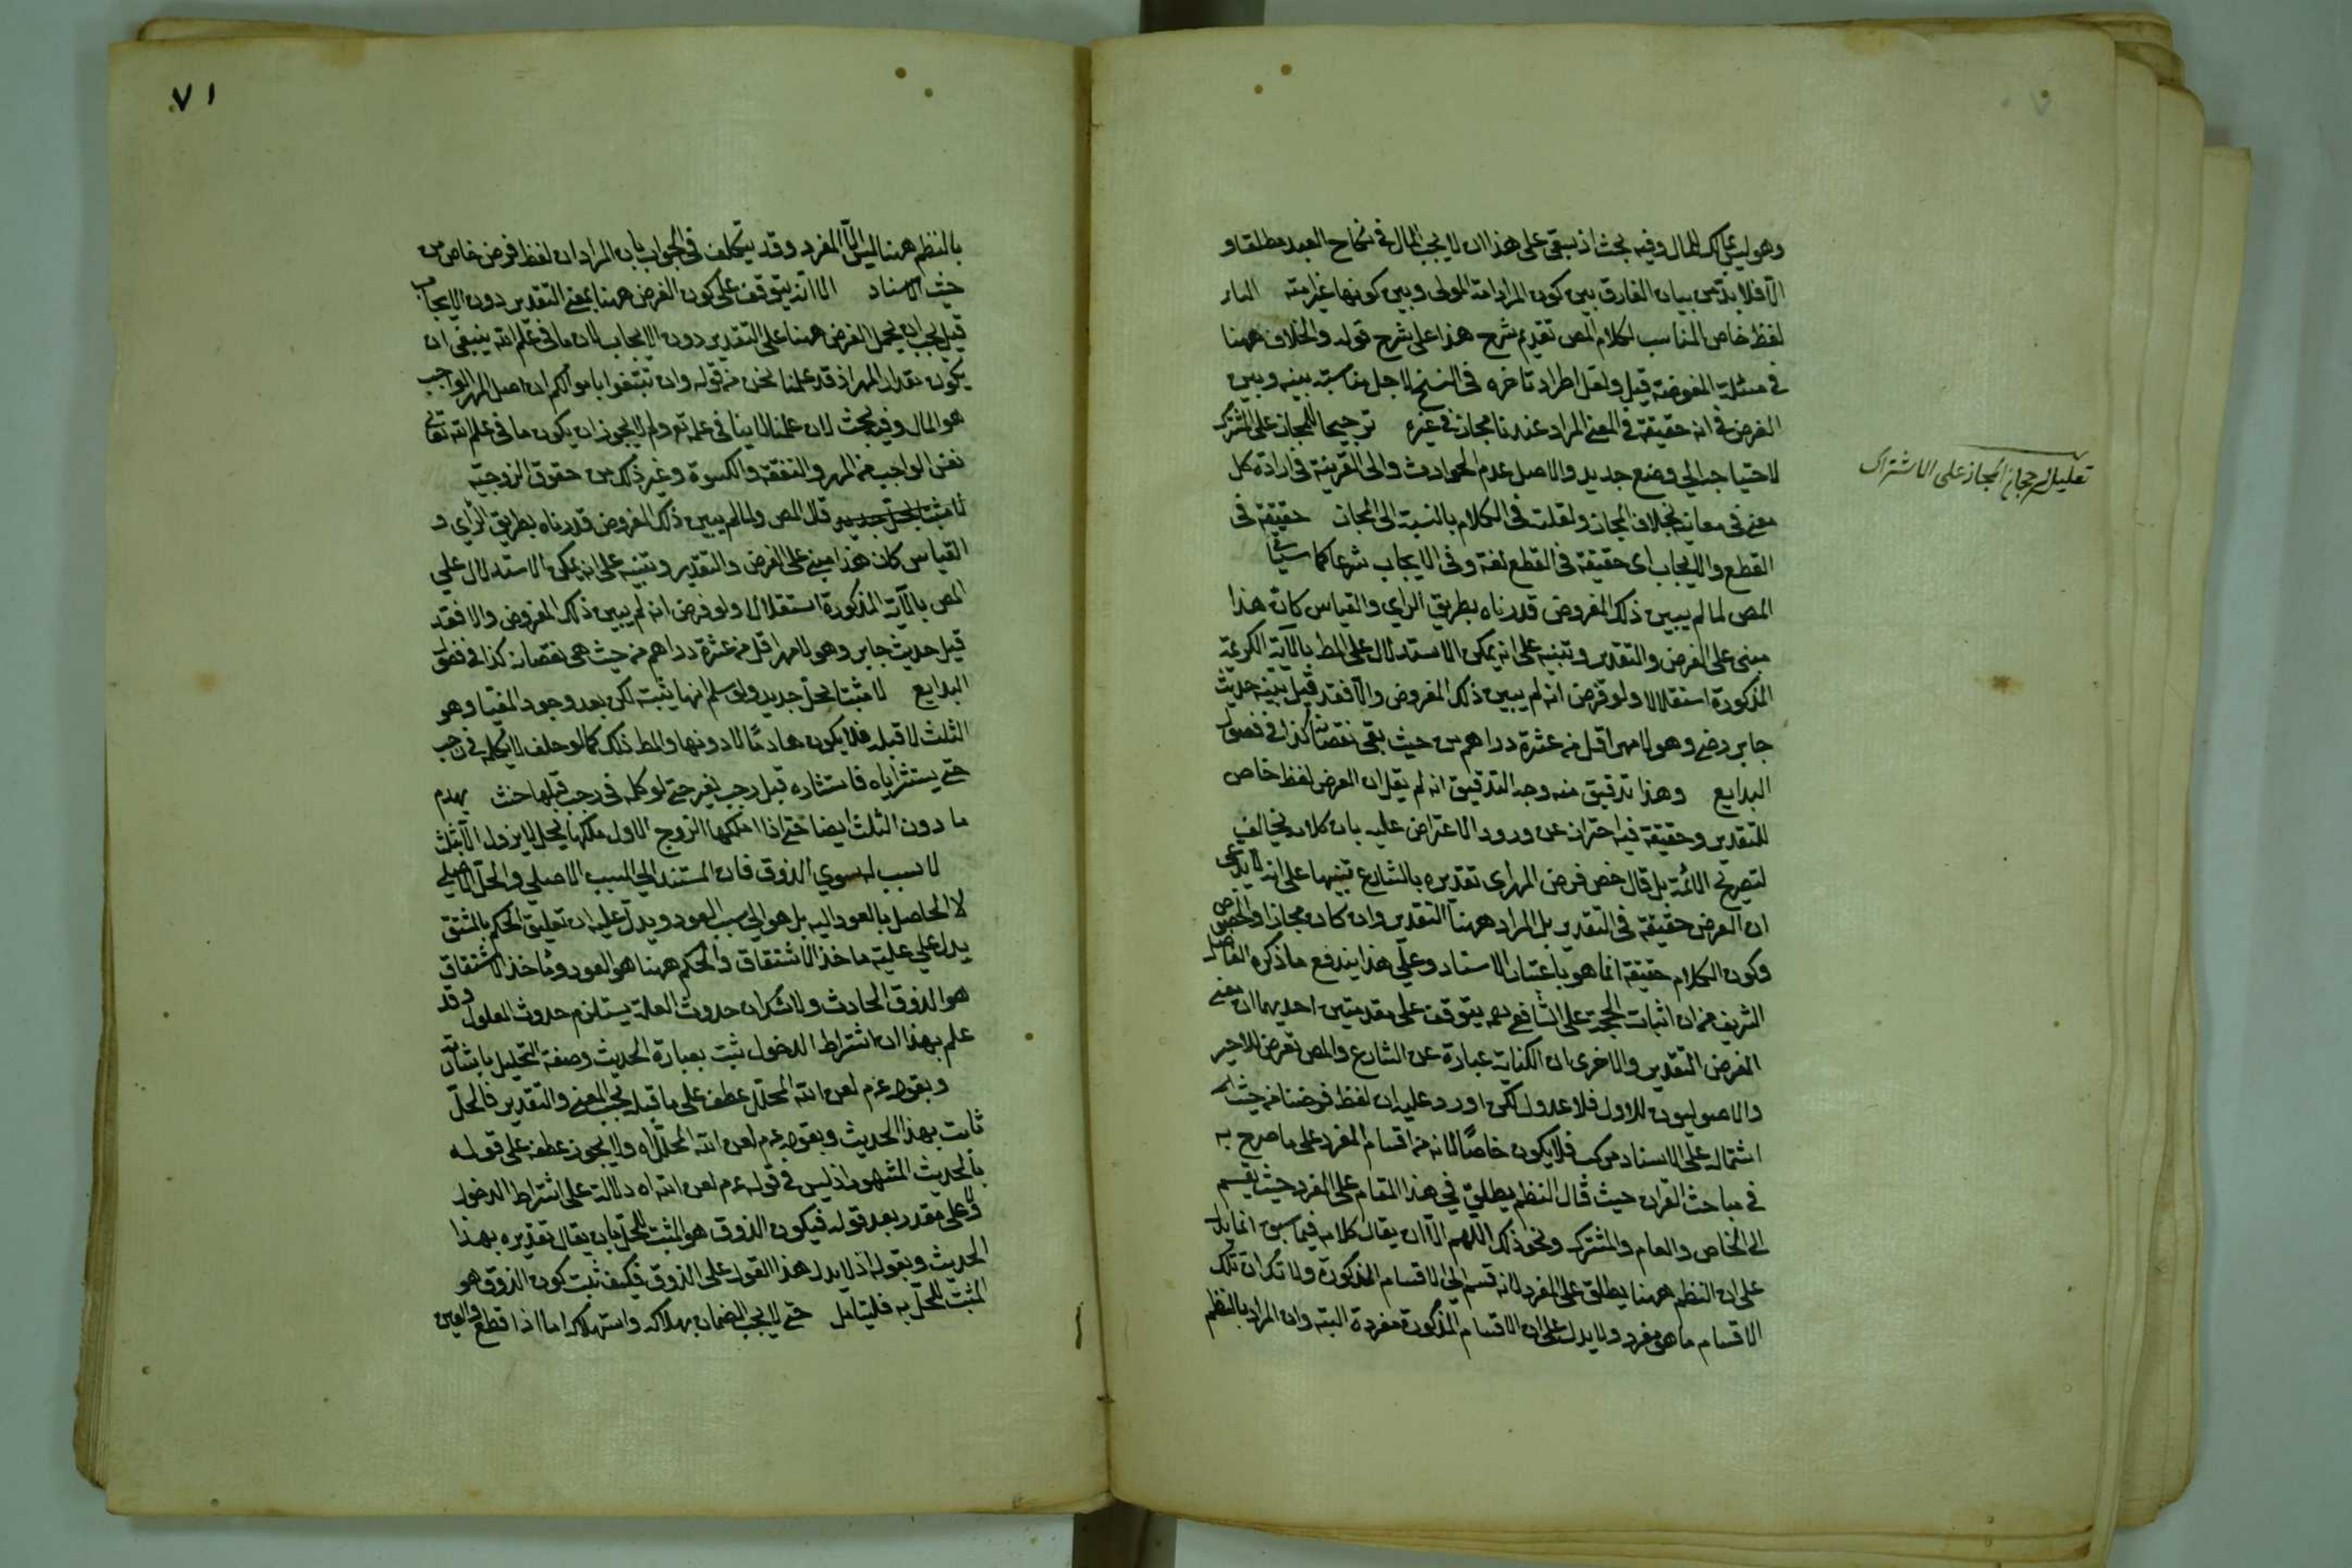 وهو ليس بمالك للمال وفيه بحث اذ يبقى على هذا ان لا يجب المال في نكاح العبد مطلقا و
الا فلا بد من بيان الفارق بين كون المراد امة المولى وبين كونها غير امته
لفظ خاص المناسب لكلام المص تقديم شرح هذا على شرح قوله والخلاف ههنا
في مسئلة المفوضة قيل ولعل اطراد تاخره في النسخ لاجل مناسبة بينه وبين
الفرض في انه حقيقة في المعنى المراد عندنا مجاز في غيره ترجيحا للمجاز على المشترك
لاحتياجه الى وضع جديد والاصل عدم الحوادث والى القرينة في ارادة كل
معنى في معانيه بخلاف المجاز ولقلته في الكلام بالنسبة الى المجاز حقيقة في
القطع والايجاب اى حقيقة في القطع لغة وفي الايجاب شرعا كما سياتي
المص لما لم يبين ذلك المفروض قدرناه بطريق الراي والقياس كان هذا
مبنى على الفرض والتقدير وتنبيه على انه يمكن الاستدلال على المط بالآية الكريمة
المذكورة استقلالا ولو فرض انه لم يبين ذلك المفروض والا فقد قيل بينه حديث
جابر رضى وهو لا مهر اقل من عشرة دراهم من حيث بقى نقصان كذا في فصول
البدايع وهذا تدقيق منه وجه التدقيق انه لم يقل ان الفرض لفظ خاص
للتقدير وحقيقة فيه احتراز عن ورود الاعتراض عليه بان كلامه يخالف
لتصريح الائمة بل قال خص فرض المهر اى تقديره بالشارع تنبيها على انه لا يدعى
ان الفرض حقيقة في التقدير بل المراد ههنا التقدير وان كان مجازا والخصوص
وكون الكلام حقيقة انما هو باعتبار الاسناد وعلى هذا يندفع ما ذكره الفاضل
الشريف من ان اثبات الحجة على الشافعي رحمه يتوقف على مقدمتين احديهما ان معنى
الفرض التقدير والاخرى ان الكناية عبارة عن الشارع والمص تعرض للاخير
والاصوليون للاول فلا عدول لكن اورد عليه ان لفظ فرضنا من حيث
اشتماله على الاسناد مركب فلا يكون خاصا لانه من اقسام المفرد على ما صرح به
في مباحث القران حيث قال النظم يطلق في هذا المقام على المفرد حيث يقسم
الى الخاص والعام والمشترك ونحو ذلك اللهم الا ان يقال كلامه فيما سبق انما يدل
على ان النظم ههنا يطلق على المفرد لانه قسم الى الاقسام المذكورة ولا شك ان تلك
الاقسام ما هو مفرد ولا يدل على ان الاقسام المذكورة مفردة البتة وان المراد بالنظم
تعليل لرجحان المجاز على الاشتراك
٧١
بالنظم ههنا ليس الا المفرد وقد يتكلف في الجواب بان المراد ان لفظ فرض خاص من
حيث الاسناد الا انه يتوقف على كون الفرض ههنا بمعنى التقدير دون الايجاب
قيل يجب ان يحمل الفرض ههنا على التقدير دون الايجاب لان ما في علم الله ينبغي ان
يكون مقدار المهر اذ قد علمنا نحن من قوله وان تبتغوا باموالكم ان اصل المهر الواجب
هو المال وفيه بحث لان علمنا لا ينافي علمه تع ولم لا يجوز ان يكون ما في علم الله تعالى
نفس الواجب من المهر والنفقة والكسوة وغير ذلك من حقوق الزوجية
لا مثبتا لحل جديد قال المص ولما لم يبين ذلك المفروض قدرناه بطريق الراى و
القياس كان هذا مبنى على الفرض والتقدير وتنبيه على انه يمكن الاستدلال على
المص بالآية المذكورة استقلالا ولو فرض انه لم يبين ذلك المفروض والا فقد
قيل حديث جابر وهو لا مهر اقل من عشرة دراهم من حيث هى نقصان كذا في فصول
البدايع لا مثبتا لحل جديد ولو سلم انها يثبته لكن بعد وجود المغيا وهو
الثلث لا قبله فلا يكون هادما لما دونها والمط ذلك كما لو حلف لا يكلمه في رجب
حتى يستشير اباه فاستشاره قبل رجب لغير حتى لو كلمه في رجب قبلها حنث يهدم
ما دون الثلث ايضا حتى اذا ملكها الزوج الاول ملكها بحل لا يزول الا بثلث
لا سبب له سوى الذوق فان المستند الى السبب الاصلي والحل الاصلي
لا الحاصل بالعود اليه بل هو الى سبب العود ويدل عليه ان تعليق الحكم بالمشتق
يدل على علية ماخذ الاشتقاق والحكم ههنا هو العود وماخذ الاشتقاق
هو الذوق الحادث ولا شك ان حدوث العلة يستلزم حدوث المعلول وقد
علم بهذا ان اشتراط الدخول ثبت بعبارة الحديث وصفة التحليل باشارته
وبقوله عم لعن الله المحلل عطف على ما قبله بحسب المعنى والتقدير فالحل
ثابت بهذا الحديث وبقوله عم لعن الله المحلل اه ولا يجوز عطفه على قوله
بالحديث المشهور اذ ليس في قوله عم لعن الله اه دلالة على اشتراط الدخول
ولا على مقدر بعد قوله فيكون الذوق هو المثبت للحل بان يقال تقديره بهذا
الحديث وبقوله اذ لا يدل هذا القول على الذوق فكيف ثبت كون الذوق هو
المثبت للحل به فليتامل حتى لا يجب الضمان بهلاكه واستهلاكه اما اذا قطع والعين